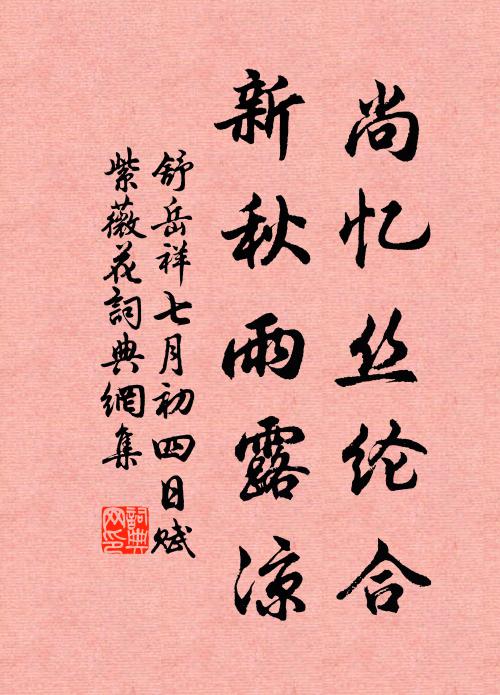 尚忆丝纶合
新秋雨露凉
舒岳祥七月初四日赋
紫薇花詞典網集
詞典
网印